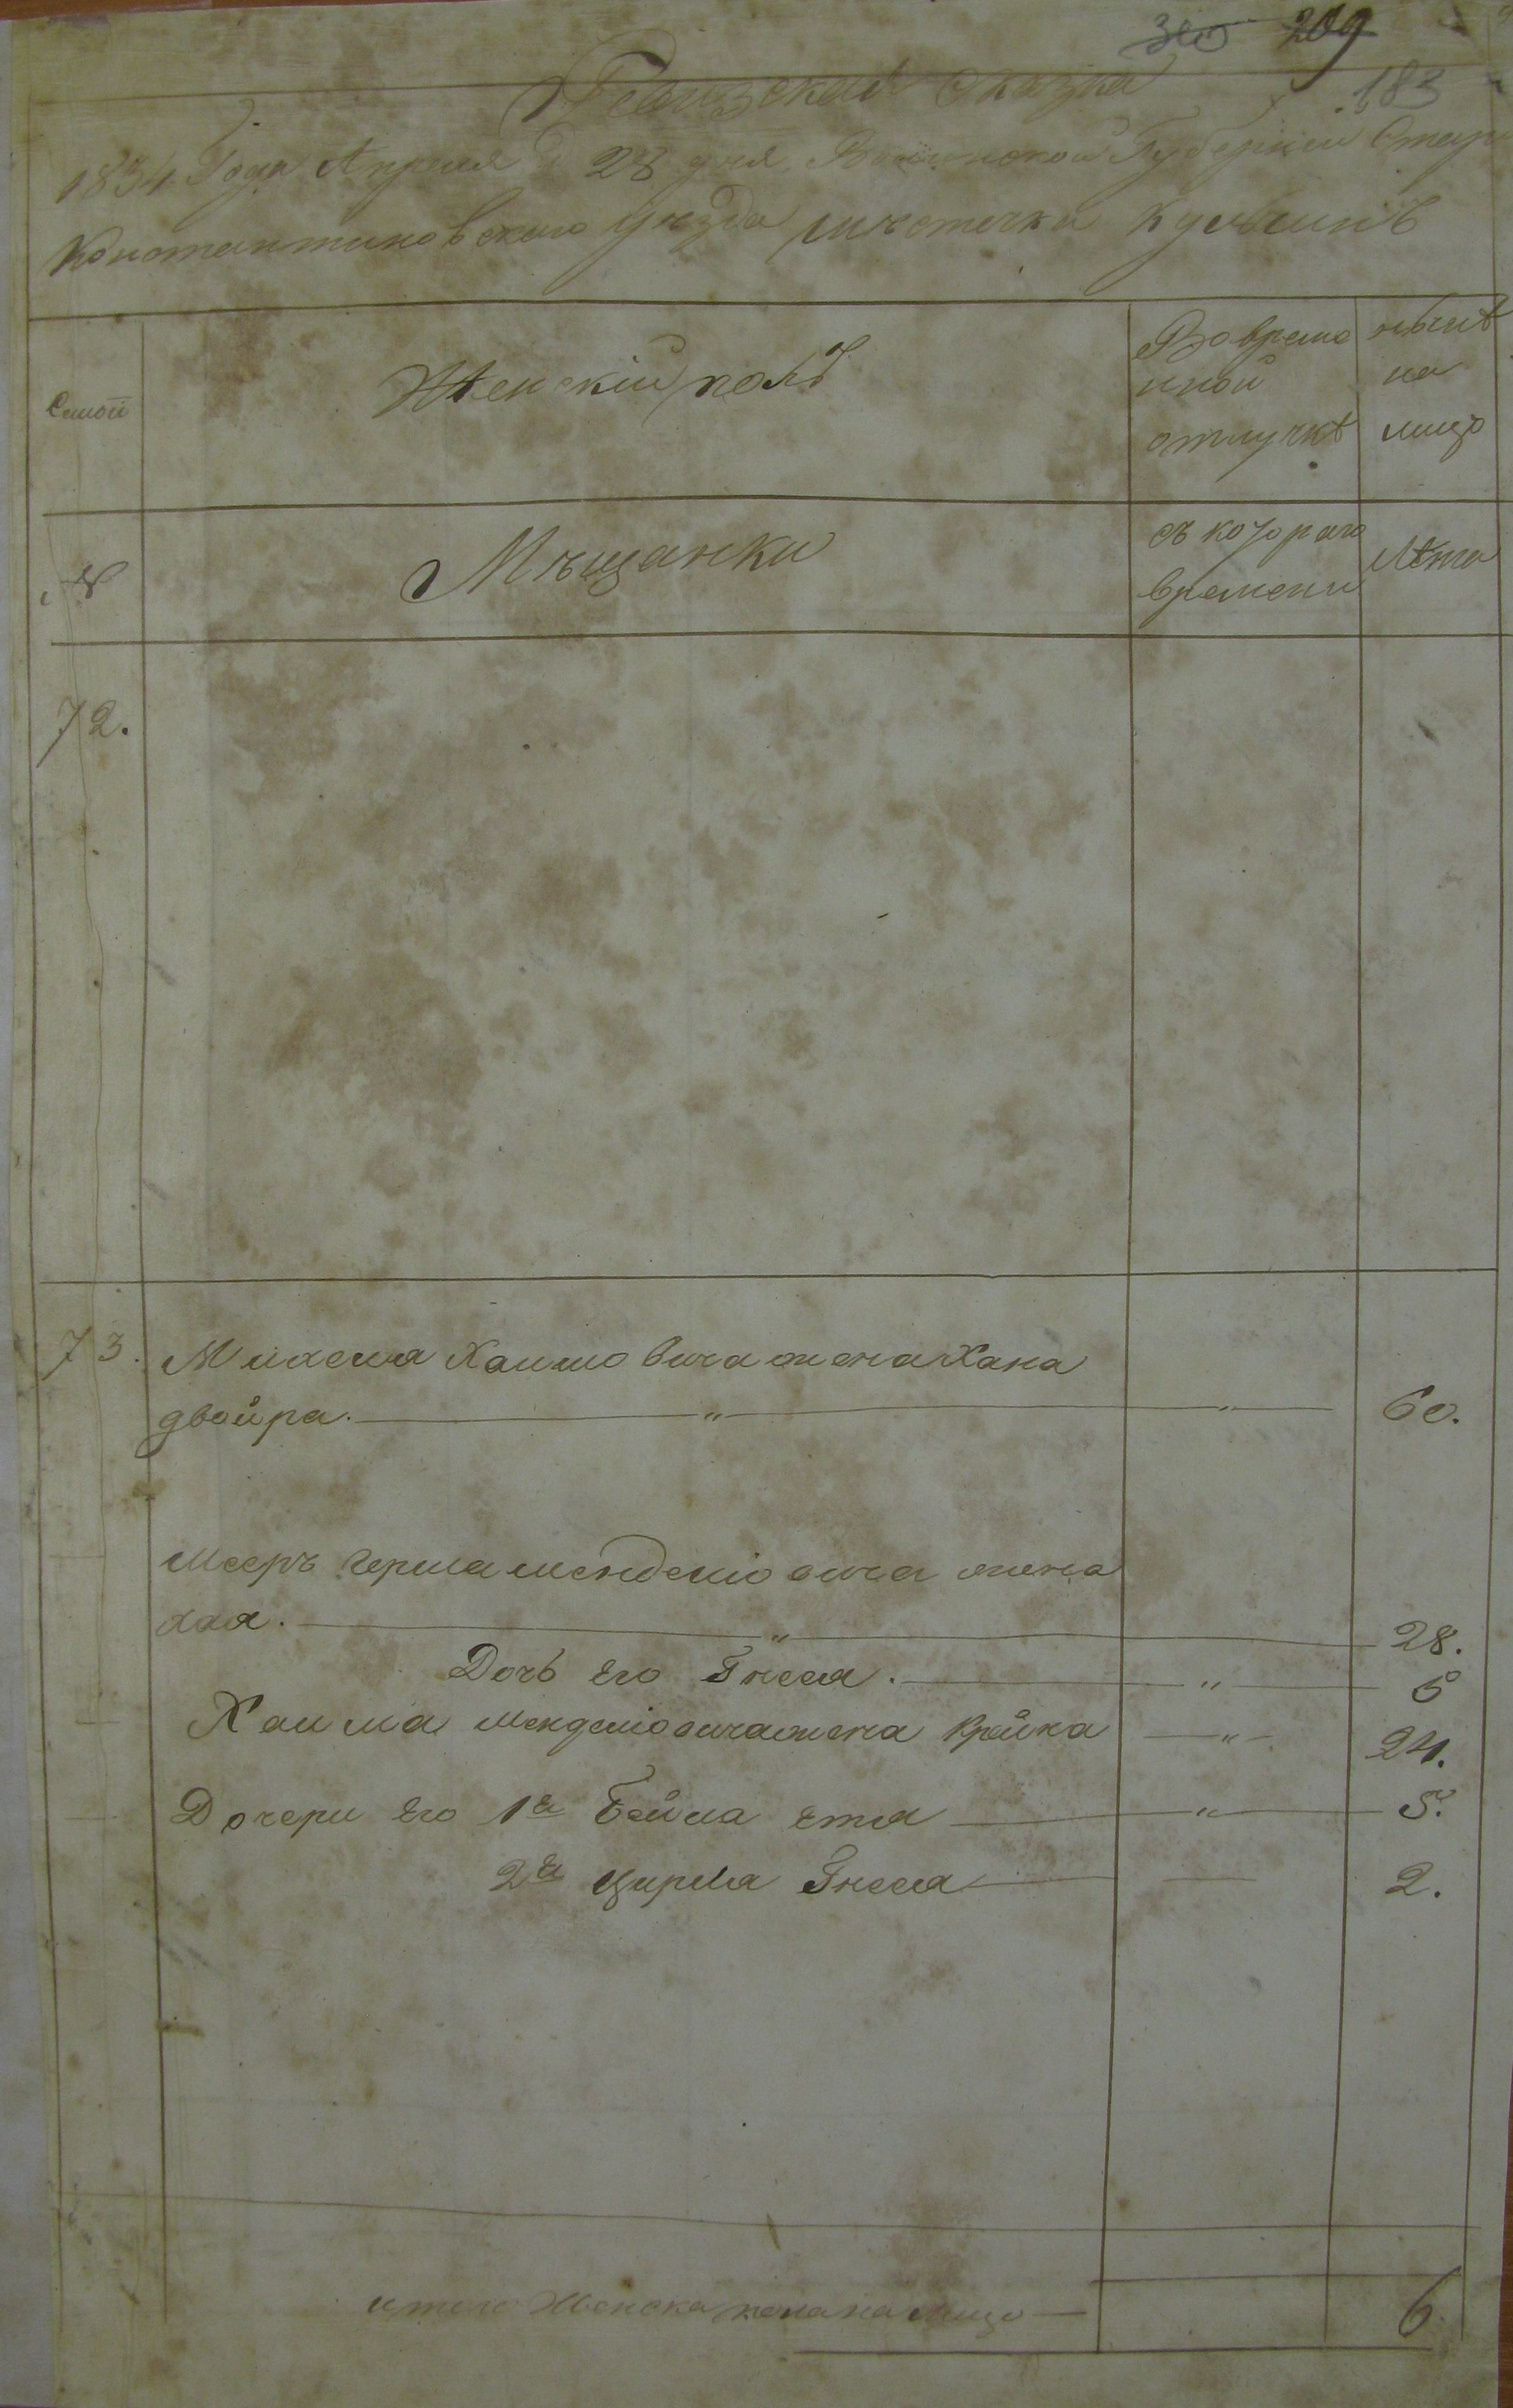 209
183
Ревизская Сказка
1834 Года Апреля 28 дня Волынской Губернии Старо
Константиновского уезда местечка Кульчинъ
Семьи
Женскій полъ
Во време
нной
отлучкѣ
ныне
на
лицо
№
Мѣщанки
съ котораго
времени
Лѣта
72.
73. Михеля Хаимовича жена Хана
двойра. — " — " — 60.
Мееръ Герша Менделіовича жена
хая. — " — 28.
Дочь его Гнеся. — " — 5
Хаима Менделіовича жена Крейна — " — 24.
Дочери его 1я Бейла етя — " — 5.
2я Цирля Гнеся — 2.
итого Женска пола на лицо — 6